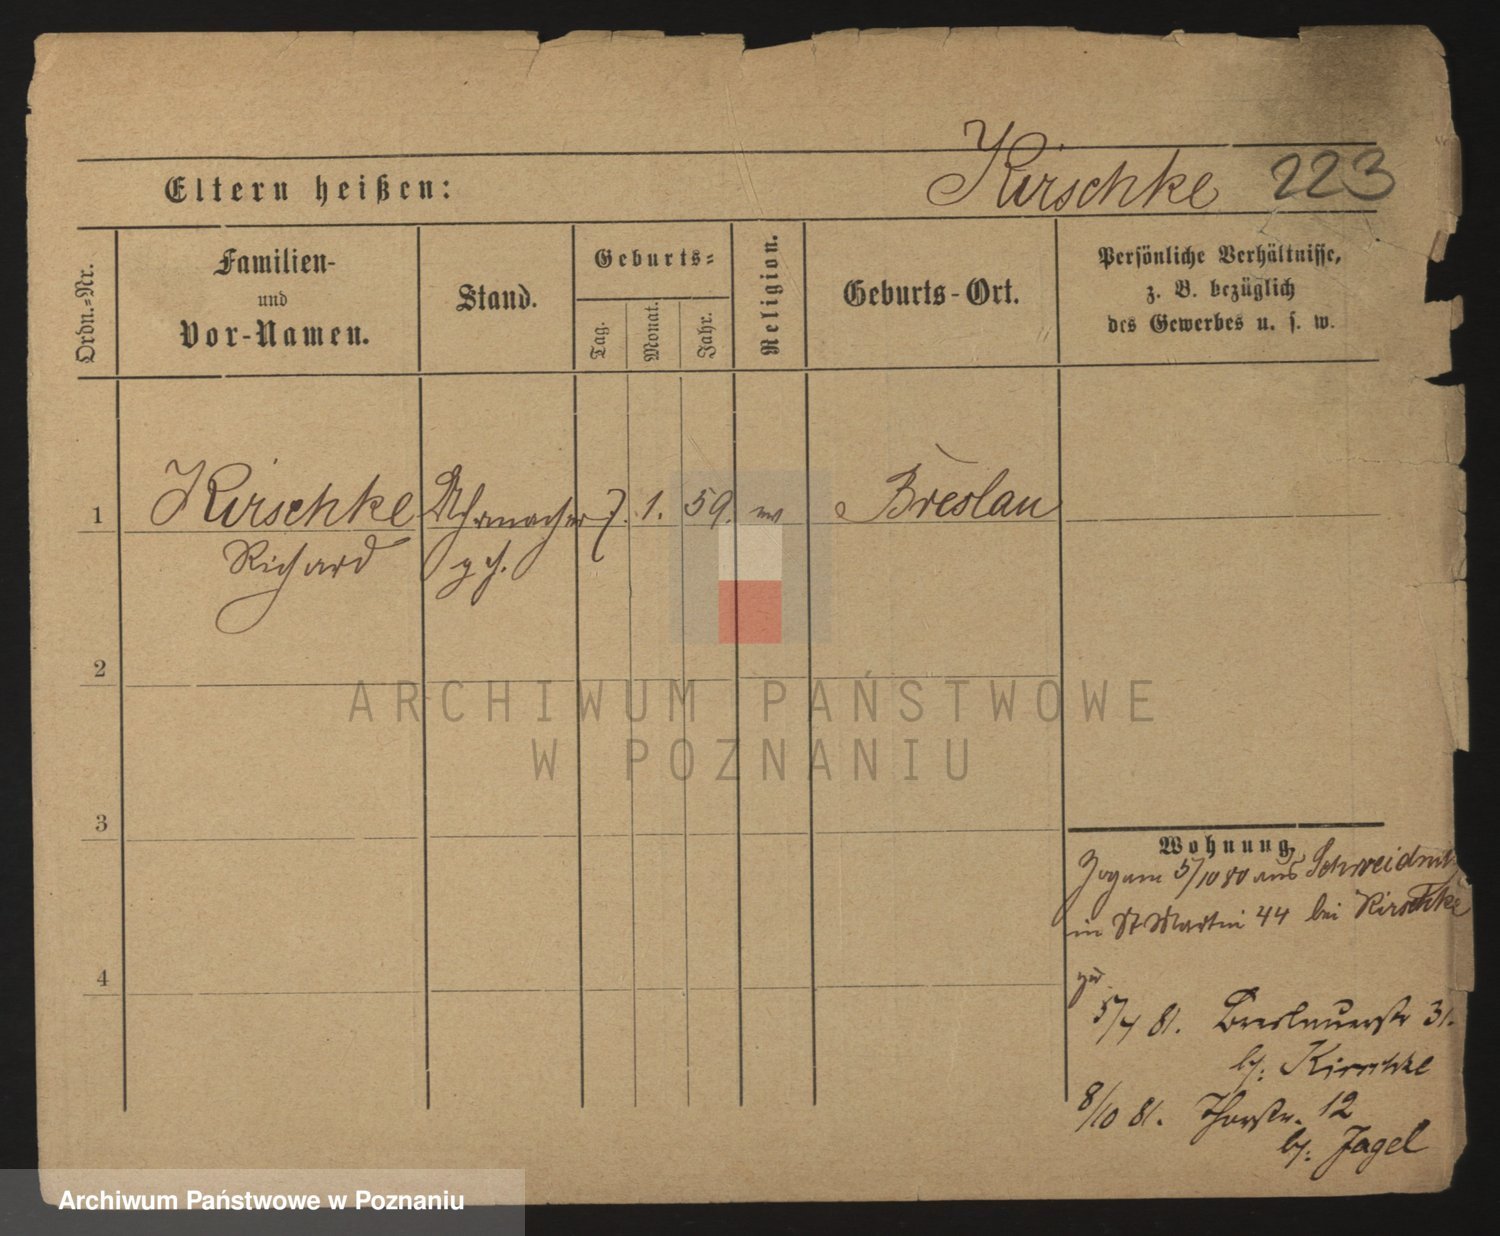 Kirschke 223
Eltern heißen:
Ordn.-Nr.
Familien-
und
Vor-Namen.
Stand.
Geburts-
Tag.
Monat.
Jahr.
Religion.
Geburts-Ort.
Persönliche Verhältnisse,
z. B. bezüglich
des Gewerbes u. s. w.
1 Kirschke Uhrmacher 7. 1. 59. Breslau
Richard
2
3
4
Wohnung
5/10 80 aus
in St Martin 44 bei Kirschke
5/4 81. Breslauerstr 31.
by: Kirschke
8/10 81. Thorstr. 12
by: Jagel
ARCHIWUM PAŃSTWOWE
W POZNANIU
Archiwum Państwowe w Poznaniu